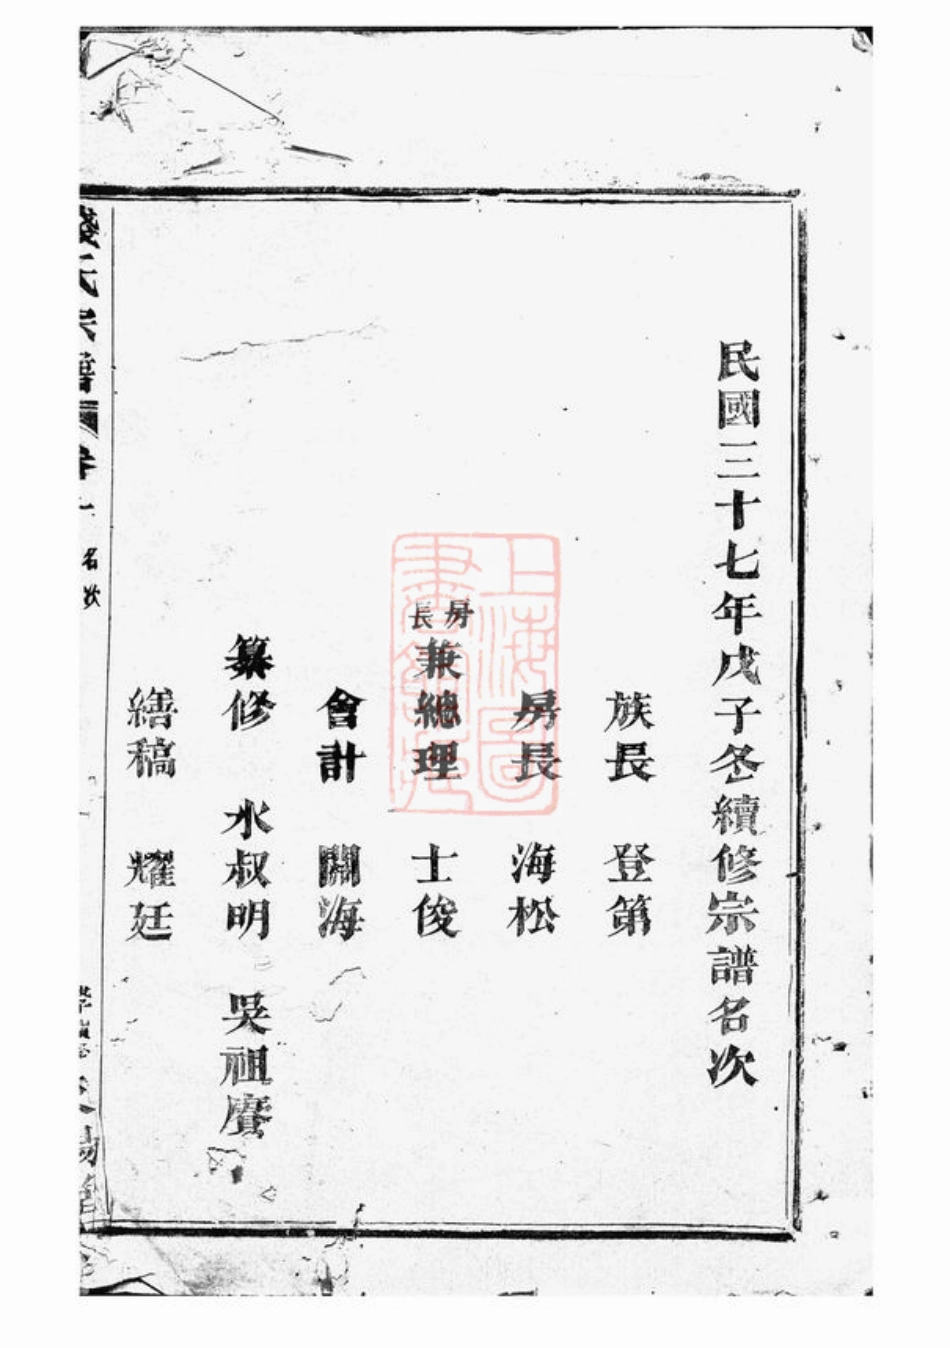 民國三十七年戊子冬續修宗譜名次
族長 登第
房長 海松
房長兼總理 士俊
會計 開海
纂修 水叔明 吳祖賡
繕稿 耀廷
錢氏宗譜 卷一 名次
上海圖書館藏